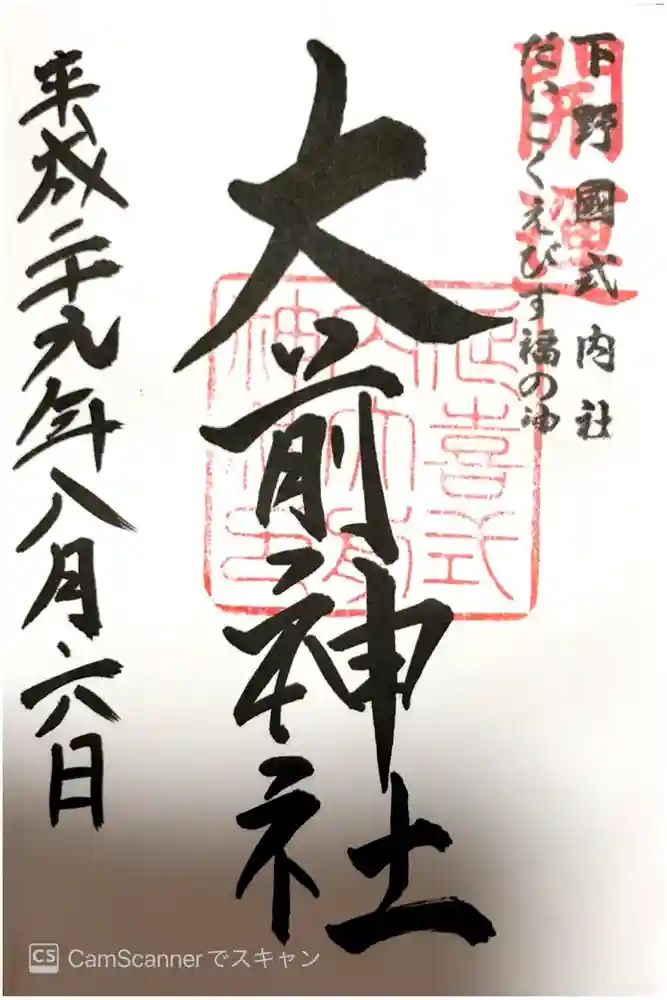 下野國式内社
だいこくえびす福の神
開運
大前神社
延喜式
内大前
神社
平成二十九年八月六日
CS CamScannerでスキャン